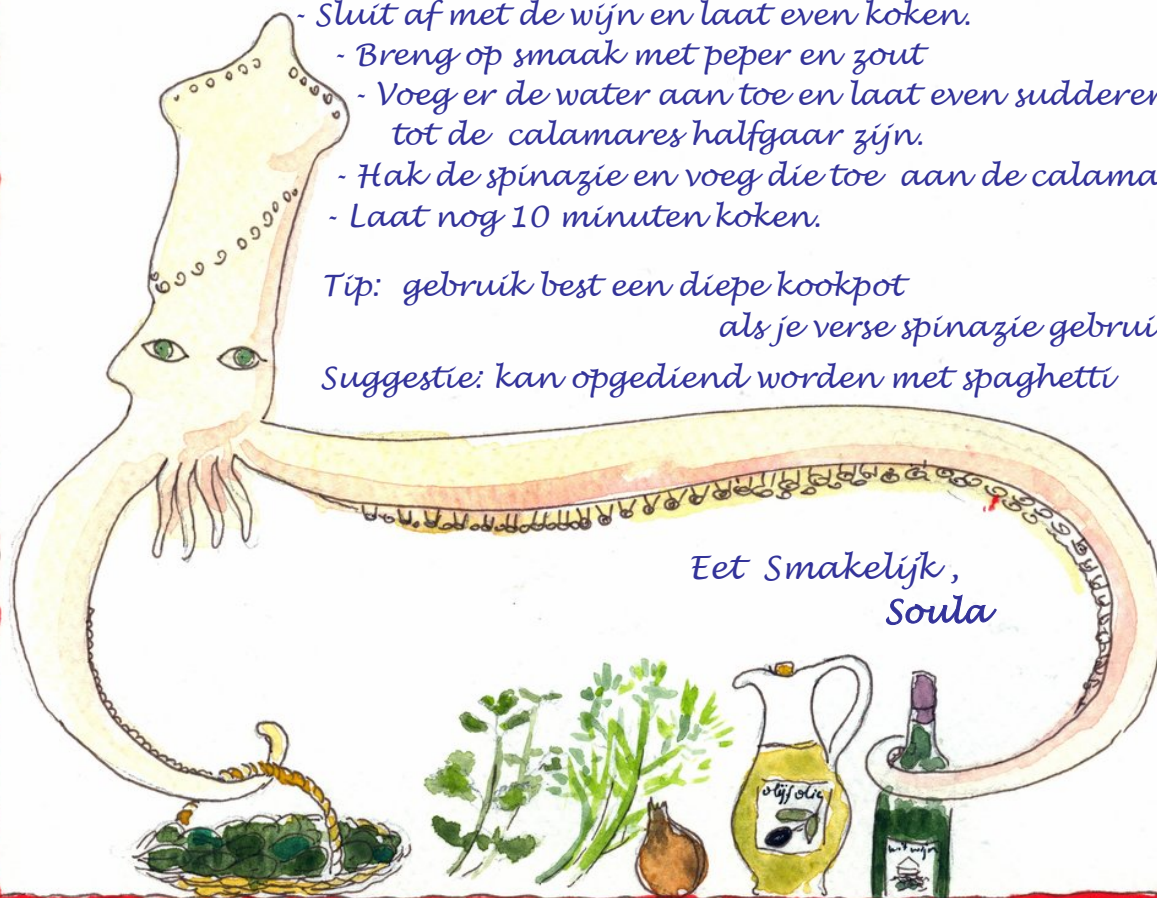 - Sluit af met de wijn en laat even koken.
- Breng op smaak met peper en zout
- Voeg er de water aan toe en laat even sudderen
tot de calamares halfgaar zijn.
- Hak de spinazie en voeg die toe aan de calama
- Laat nog 10 minuten koken.
Tip: gebruik best een diepe kookpot
als je verse spinazie gebrui
Suggestie: kan opgediend worden met spaghetti
Eet Smakelijk,
Soula
olijfolie